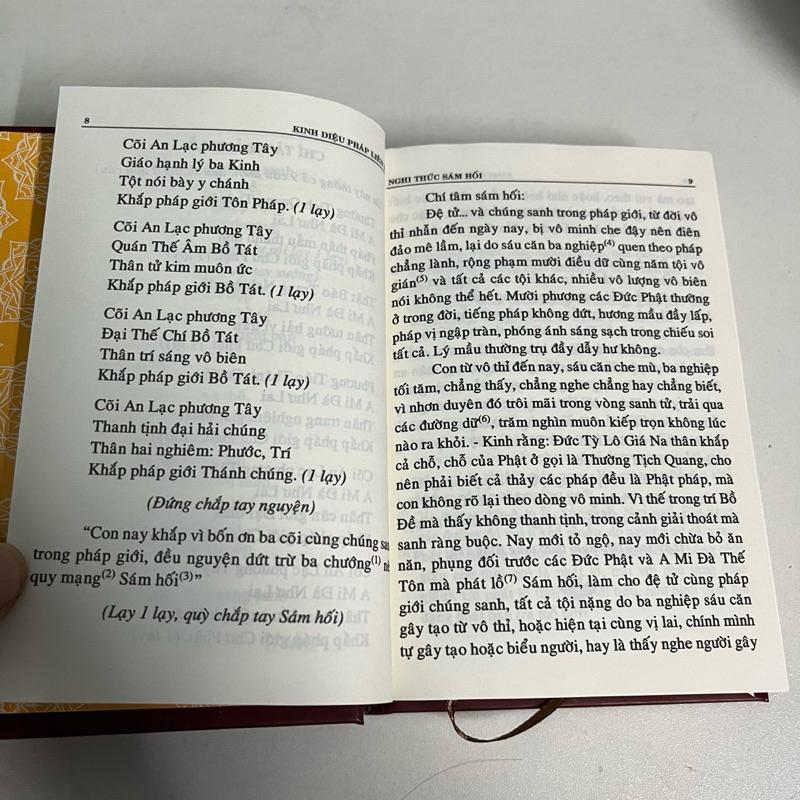 8
KINH DIỆU PHÁP LIÊN
Cõi An Lạc phương Tây
Giáo hạnh lý ba Kinh
Tột nói bày y chánh
Khắp pháp giới Tôn Pháp. (1 lạy)
Cõi An Lạc phương Tây
Quán Thế Âm Bồ Tát
Thân tử kim muôn ức
Khắp pháp giới Bồ Tát. (1 lạy)
Cõi An Lạc phương Tây
Đại Thế Chí Bồ Tát
Thân trí sáng vô biên
Khắp pháp giới Bồ Tát. (1 lạy)
Cõi An Lạc phương Tây
Thanh tịnh đại hải chúng
Thân hai nghiêm: Phước, Trí
Khắp pháp giới Thánh chúng. (1 lạy)
(Đứng chắp tay nguyện)
“Con nay khắp vì bốn ơn ba cõi cùng chúng
trong pháp giới, đều nguyện dứt trừ ba chướng(1)
quy mạng(2) Sám hối(3)”
(Lạy 1 lạy, quỳ chắp tay Sám hối)
NGHI THỨC SÁM HỐI
9
Chí tâm sám hối:
Đệ tử... và chúng sanh trong pháp giới, từ đời vô
thỉ nhẫn đến ngày nay, bị vô minh che đậy nên điên
đảo mê lầm, lại do sáu căn ba nghiệp(4) quen theo pháp
chẳng lành, rộng phạm mười điều dữ cùng năm tội vô
gián(5) và tất cả các tội khác, nhiều vô lượng vô biên
nói không thể hết. Mười phương các Đức Phật thường
ở trong đời, tiếng pháp không dứt, hương mầu đầy lấp,
pháp vị ngập tràn, phóng ánh sáng sạch trong chiếu soi
tất cả. Lý mầu thường trụ đầy dẫy hư không.
Con từ vô thỉ đến nay, sáu căn che mù, ba nghiệp
tối tăm, chẳng thấy, chẳng nghe chẳng hay chẳng biết,
vì nhơn duyên đó trôi mãi trong vòng sanh tử, trải qua
các đường dữ(6), trăm nghìn muôn kiếp trọn không lúc
nào ra khỏi. - Kinh rằng: Đức Tỳ Lô Giá Na thân khắp
cả chỗ, chỗ của Phật ở gọi là Thường Tịch Quang, cho
nên phải biết cả thảy các pháp đều là Phật pháp, mà
con không rõ lại theo dòng vô minh. Vì thế trong trí Bồ
Đề mà thấy không thanh tịnh, trong cảnh giải thoát mà
sanh ràng buộc. Nay mới tỏ ngộ, nay mới chừa bỏ ăn
năn, phụng đối trước các Đức Phật và A Mi Đà Thế
Tôn mà phát lồ(7) Sám hối, làm cho đệ tử cùng pháp
giới chúng sanh, tất cả tội nặng do ba nghiệp sáu căn
gây tạo từ vô thỉ, hoặc hiện tại cùng vị lai, chính mình
tự gây tạo hoặc biểu người, hay là thấy nghe người gây